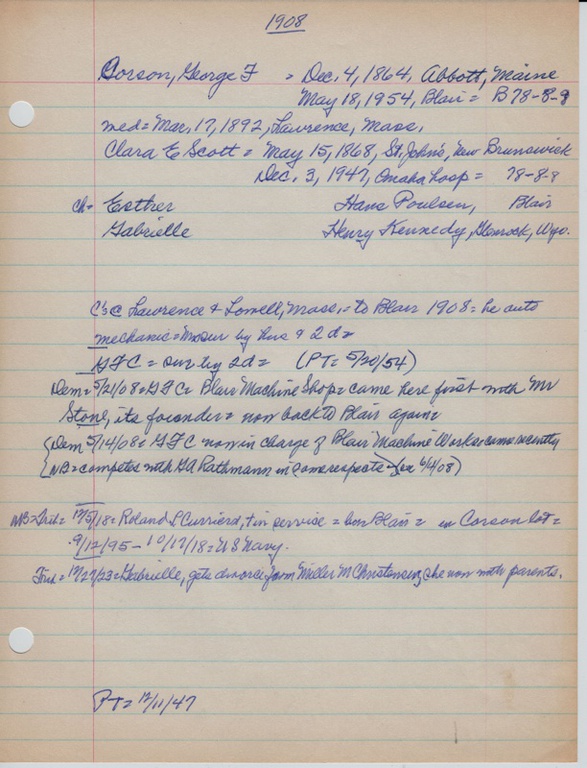 1908
Corson, George F = Dec. 4, 1864, Abbott, Maine
May 18, 1954, Blair = B78-8-9
med = Mar. 17, 1892, Lawrence, Mass.
Clara E Scott = May 15, 1868, St. John's, New Brunswick
Dec. 3, 1947, Omaha hosp = 78-8-8
ch = Esther Hans Poulsen, Blair
Gabrielle Henry Kennedy, Glenrock, Wyo.
C & C Lawrence & Lowell, Mass. = to Blair 1908 = he auto
mechanic = Mrs sur by hus & 2d =
GFC = sur by 2d = (PT = 5/20/54)
Dem = 5/21/08 = GFC = Blair Machine Shop = came here first with Mr
Stone, its founder = now back to Blair again =
Dem 5/14/08 = GFC now in charge of Blair Machine Works = came recently
NB = competes with GA Rathmann in some respects = (ex 6/4/08)
NB = Trib = 12/5/18 = Roland L Currier d, in service = bur Blair = in Corson lot =
9/12/95 - 10/17/18 = US Navy.
Trib = 12/27/23 = Gabrielle, gets divorce from Miller M Christensen, she now with parents.
PT = 12/11/47